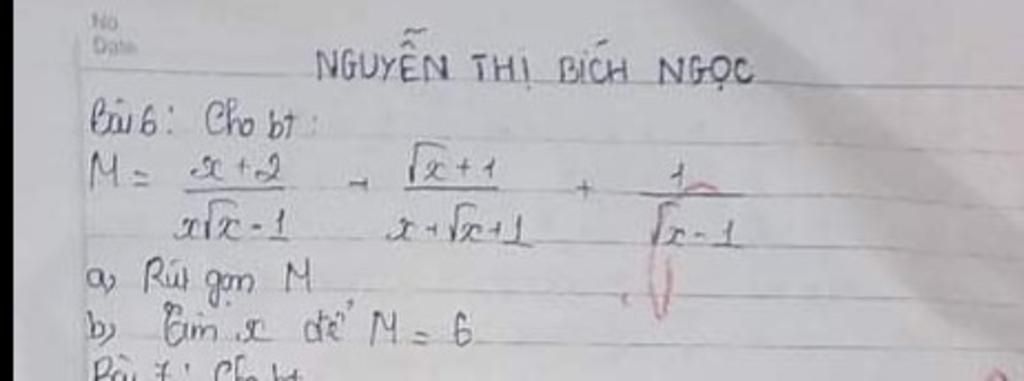 No
Date
NGUYỄN THỊ BÍCH NGỌC
Bài 6: Cho bt:
M = \frac{x+2}{x\sqrt{x}-1} + \frac{\sqrt{x}+1}{x+\sqrt{x}+1} + \frac{1}{\sqrt{x}-1}
a) Rút gọn M
b) Tìm x để M = 6
Bài 7: Cho bt